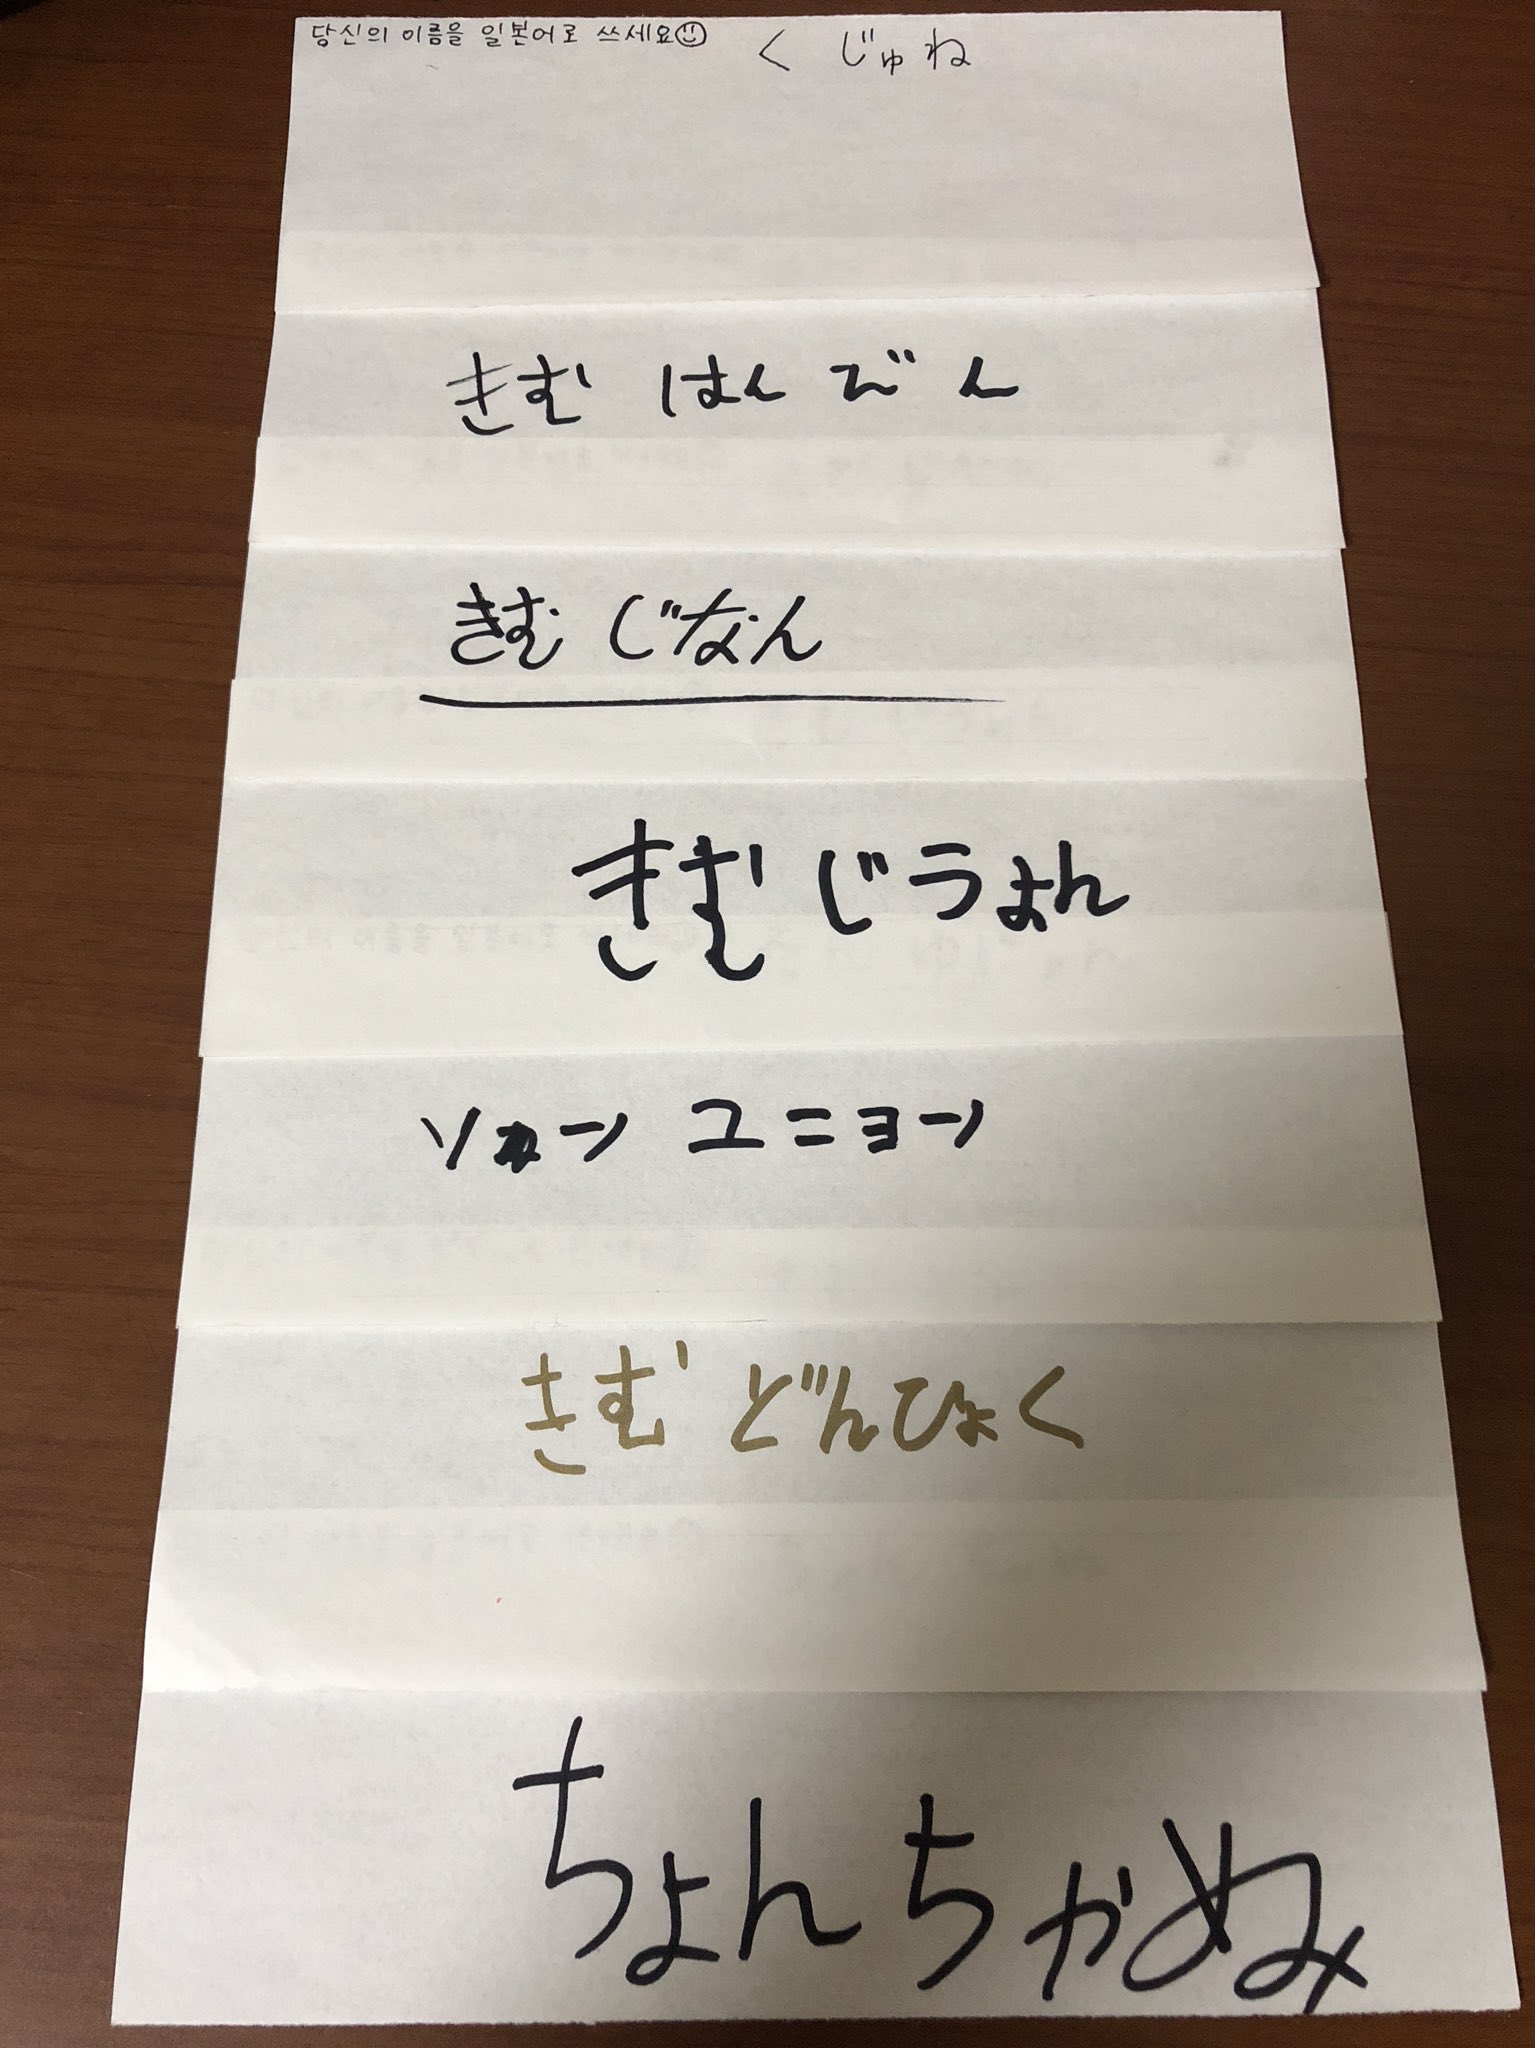 당신의 이름을 일본어로 쓰세요☺ く じゅね
きむ はんびん
きむ じなん
きむ じうょん
ソカン ユニョン
きむ どんひょく
ちょん ちゃぬ
み